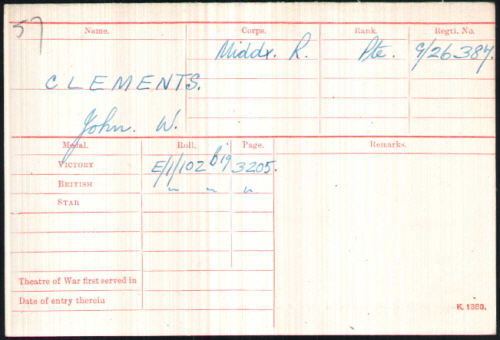 57
Name. Corps. Rank. Regtl. No.
Middx. R. Pte. G/26384.
CLEMENTS.
John. W.
Medal. Roll. Page. Remarks.
VICTORY E/1/102 B19 3205.
BRITISH " " "
STAR
Theatre of War first served in
Date of entry therein
K. 1380.